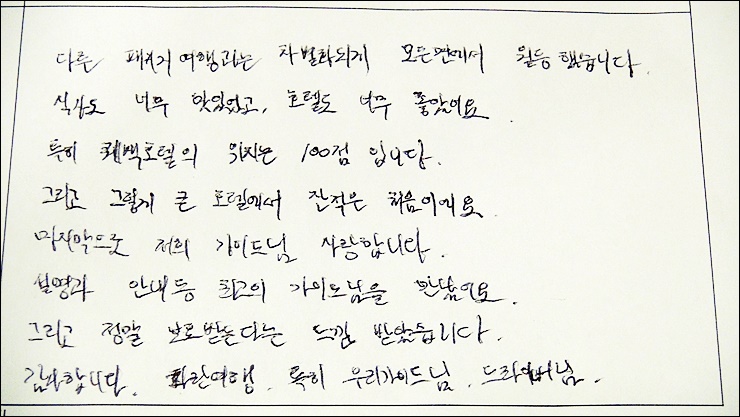 다른 패키지 여행과는 차별화되게 모든면에서 월등 했습니다.
식사도 너무 맛있었고, 호텔도 너무 좋았어요.
특히 퀘백호텔의 위치는 100점 입니다.
그리고 그렇게 큰 호텔에서 잔적은 처음이에요.
마지막으로 저희 가이드님 사랑합니다.
설명과 안내등 최고의 가이드님을 만났어요.
그리고 정말 보호받는다는 느낌 받았습니다.
감사합니다. 파란여행. 특히 우리가이드님. 드라이버님.